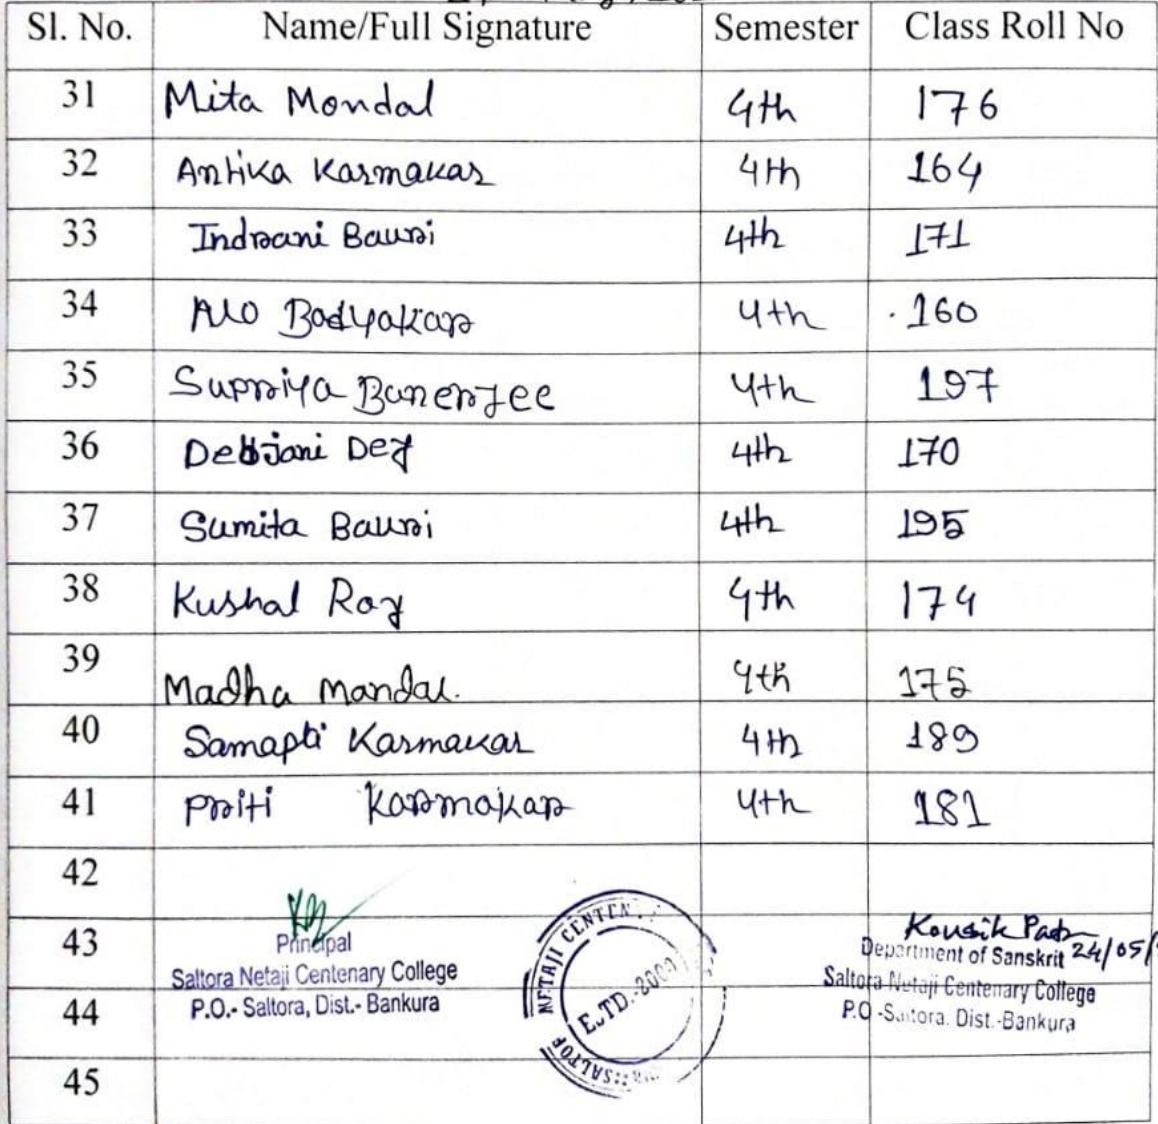 Sl. No. Name/Full Signature Semester Class Roll No
31 Mita Mondal 4th 176
32 Antika Karmakar 4th 164
33 Indrani Bauri 4th 171
34 Alo Badyakar 4th 160
35 Supriya Banerjee 4th 197
36 Debjani Dey 4th 170
37 Sumita Bauri 4th 195
38 Kushal Roy 4th 174
39 Madha Mandal. 4th 175
40 Samapti Karmakar 4th 189
41 Priti Karmakar 4th 181
42
43
Principal
Saltora Netaji Centenary College
P.O.- Saltora, Dist.- Bankura
NETAJI CENTEN
ESTD.-2000
Kousik
Department of Sanskrit 24/05/
Saltora Netaji Centenary College
P.O -Saltora. Dist.-Bankura
44
45